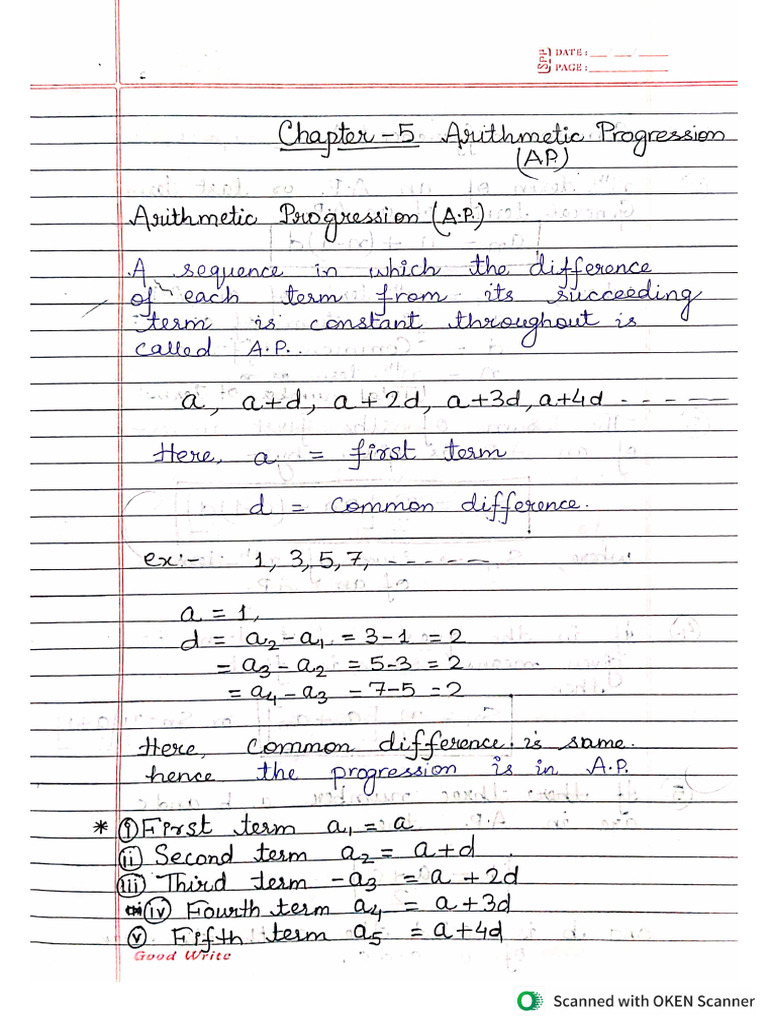 SPP DATE: __ __ __
PAGE: ________
Chapter - 5 Arithmetic Progression
(A.P.)
Arithmetic Progression (A.P.)
A sequence in which the difference
of each term from its succeeding
term is constant throughout is
called A.P..
a, a+d, a+2d, a+3d, a+4d - - - - -
Here, a = first term
d = Common difference.
ex:- 1, 3, 5, 7, - - - - - -
a = 1,
d = a2 - a1 = 3 - 1 = 2
= a3 - a2 = 5 - 3 = 2
= a4 - a3 - 7 - 5 = 2
Here, Common difference is same.
hence the progression is in A.P.
* (i) First term a1 = a
(ii) Second term a2 = a+d
(iii) Third term - a3 = a + 2d
(iv) Fourth term a4 = a + 3d
(v) Fifth term a5 = a + 4d
Good Write
Scanned with OKEN Scanner